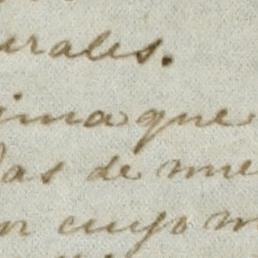 urales.
ima que
das de nue
n cuyo m